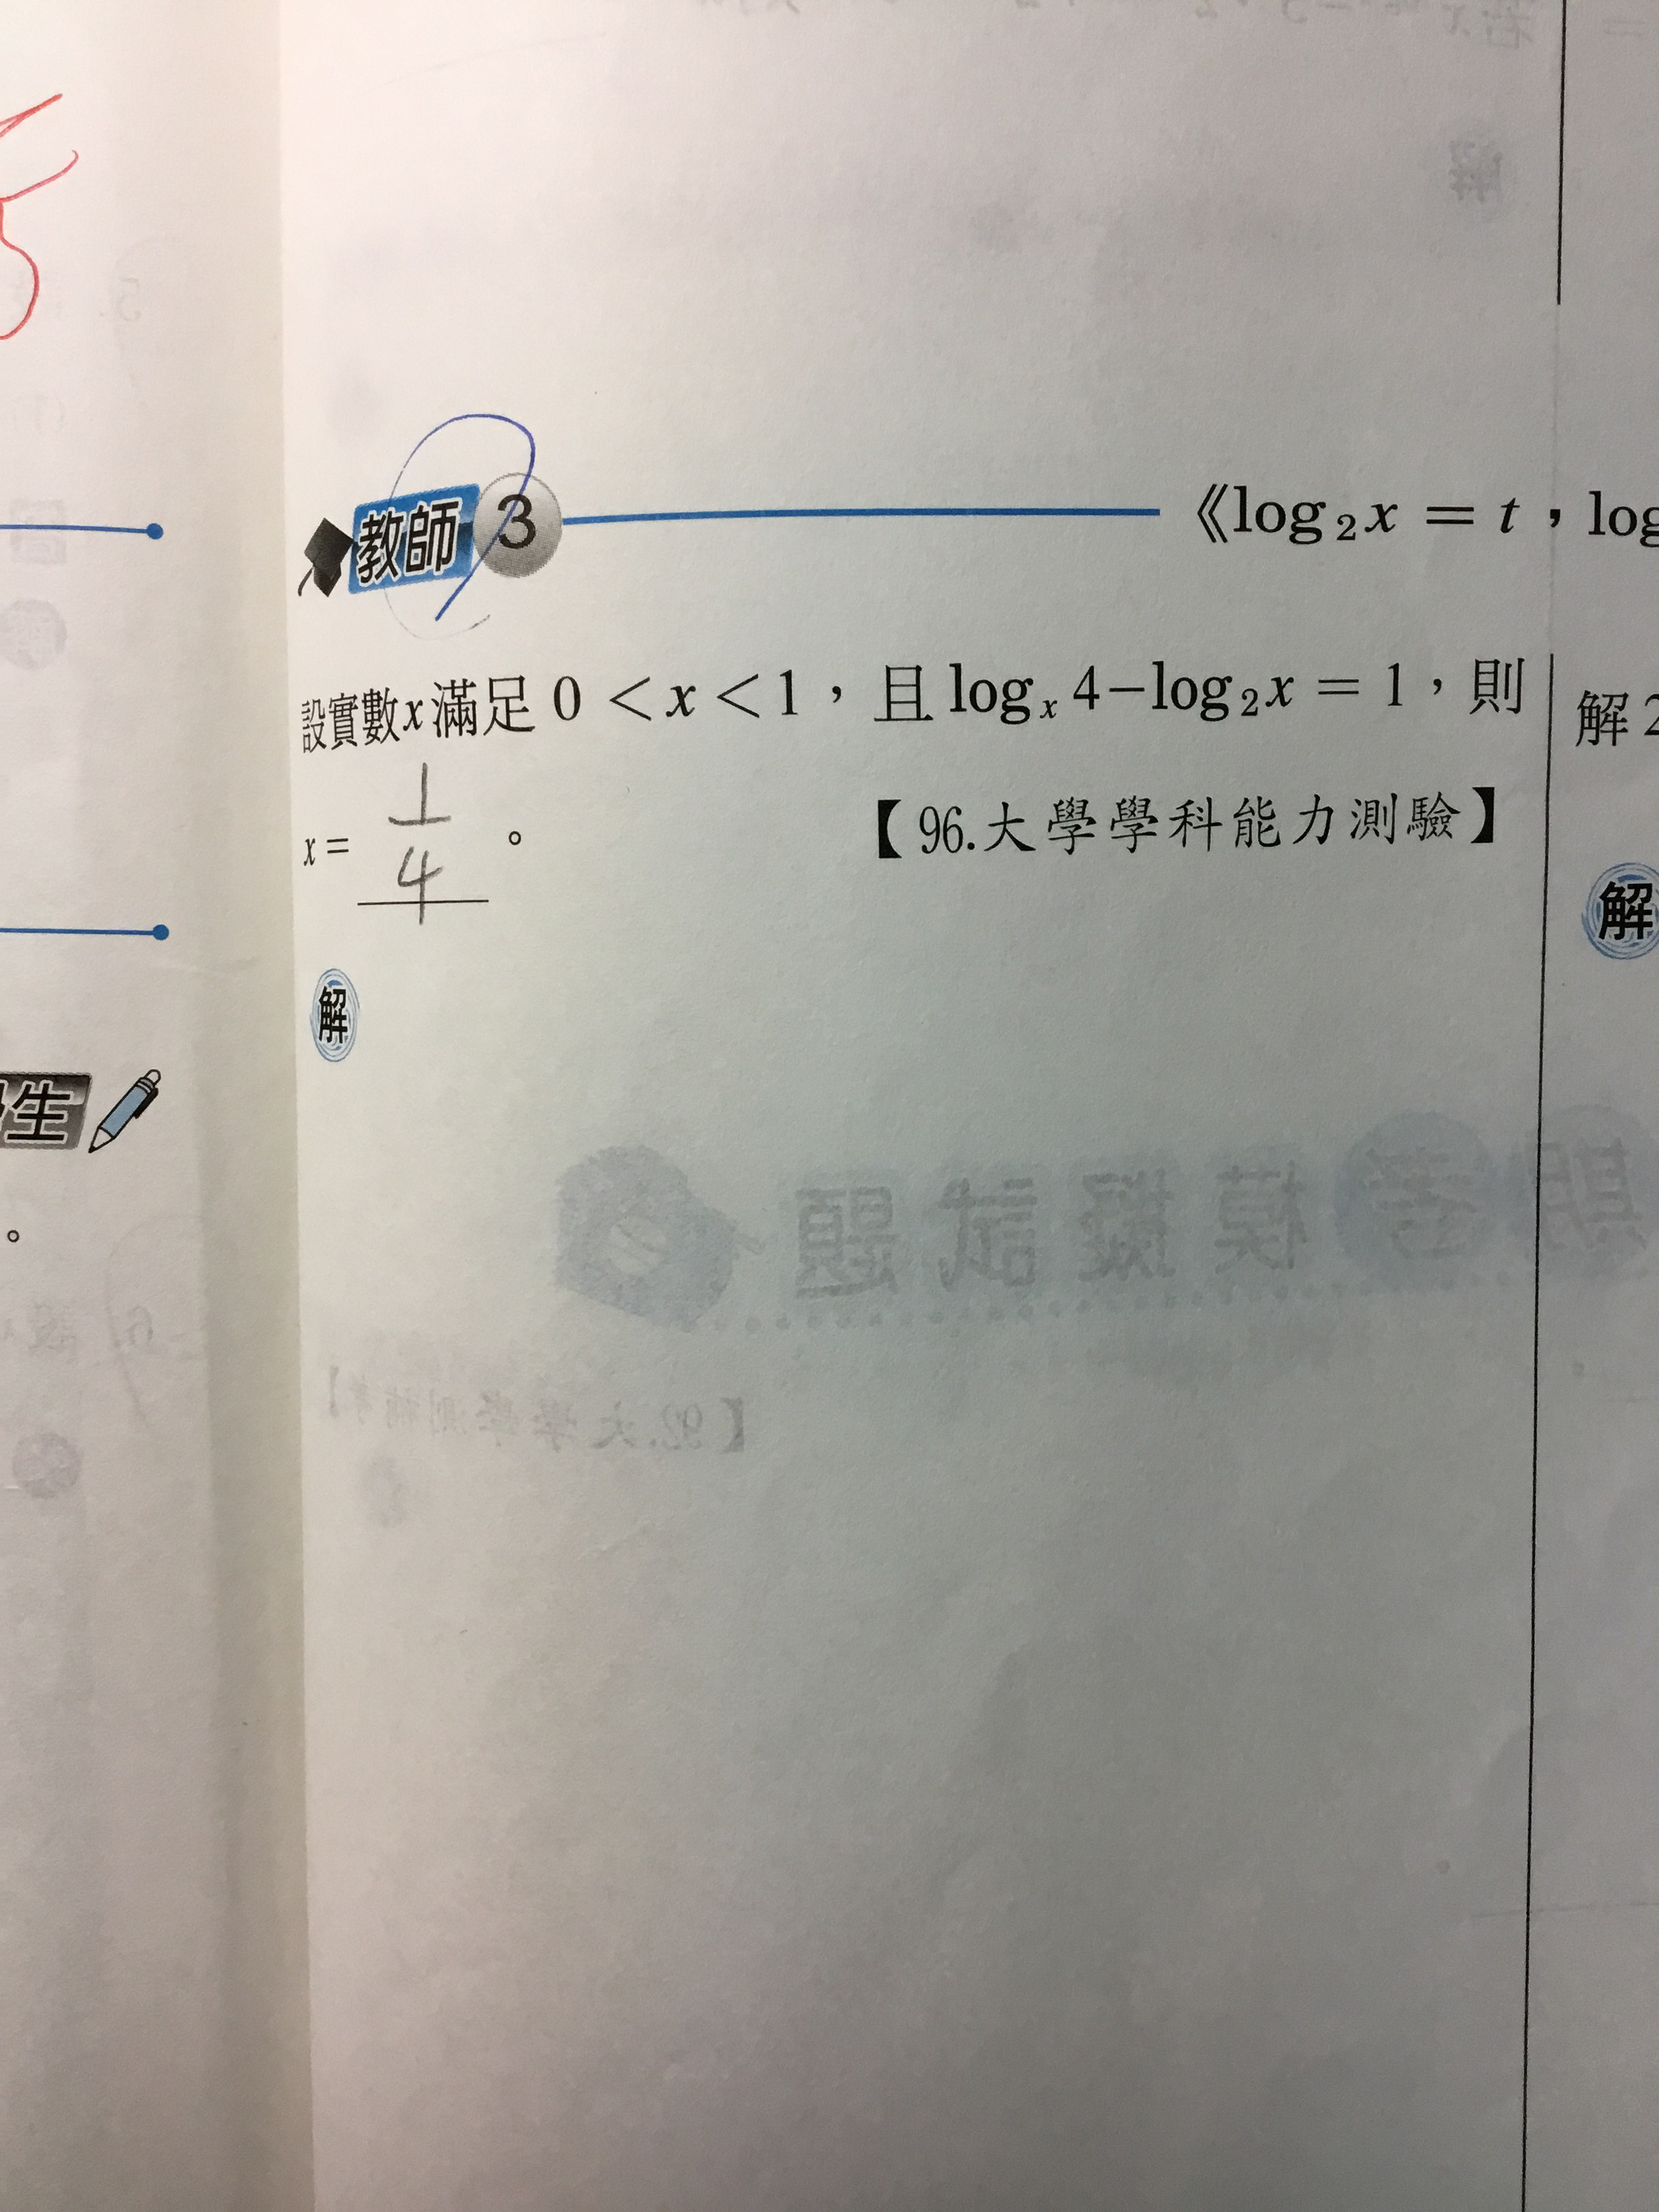 教師 3 《log₂x = t，log
設實數x滿足 0 < x < 1，且 logₓ 4 − log₂x = 1，則
x = 1/4 。 【96.大學學科能力測驗】
解
解 2
解
生
。